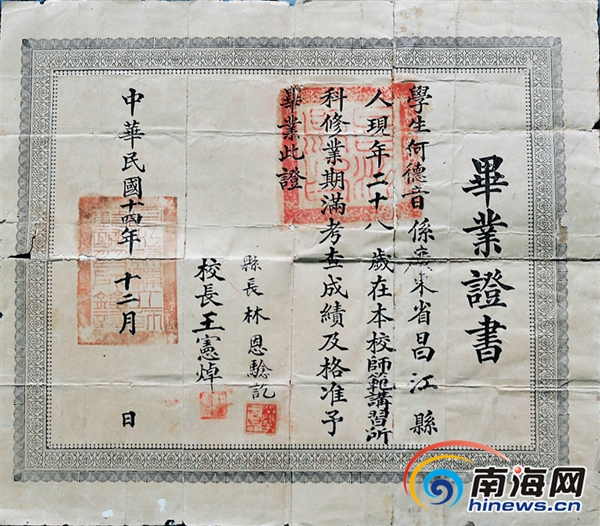 畢業證書
學生何德音係廣東省昌江縣
人現年二十八歲在本校師範講習所
科修業期滿考查成績及格准予
畢業此證
縣長林恩騐訖
校長王憲焯
中華民國十四年十二月 日
南海网
www.hinews.cn